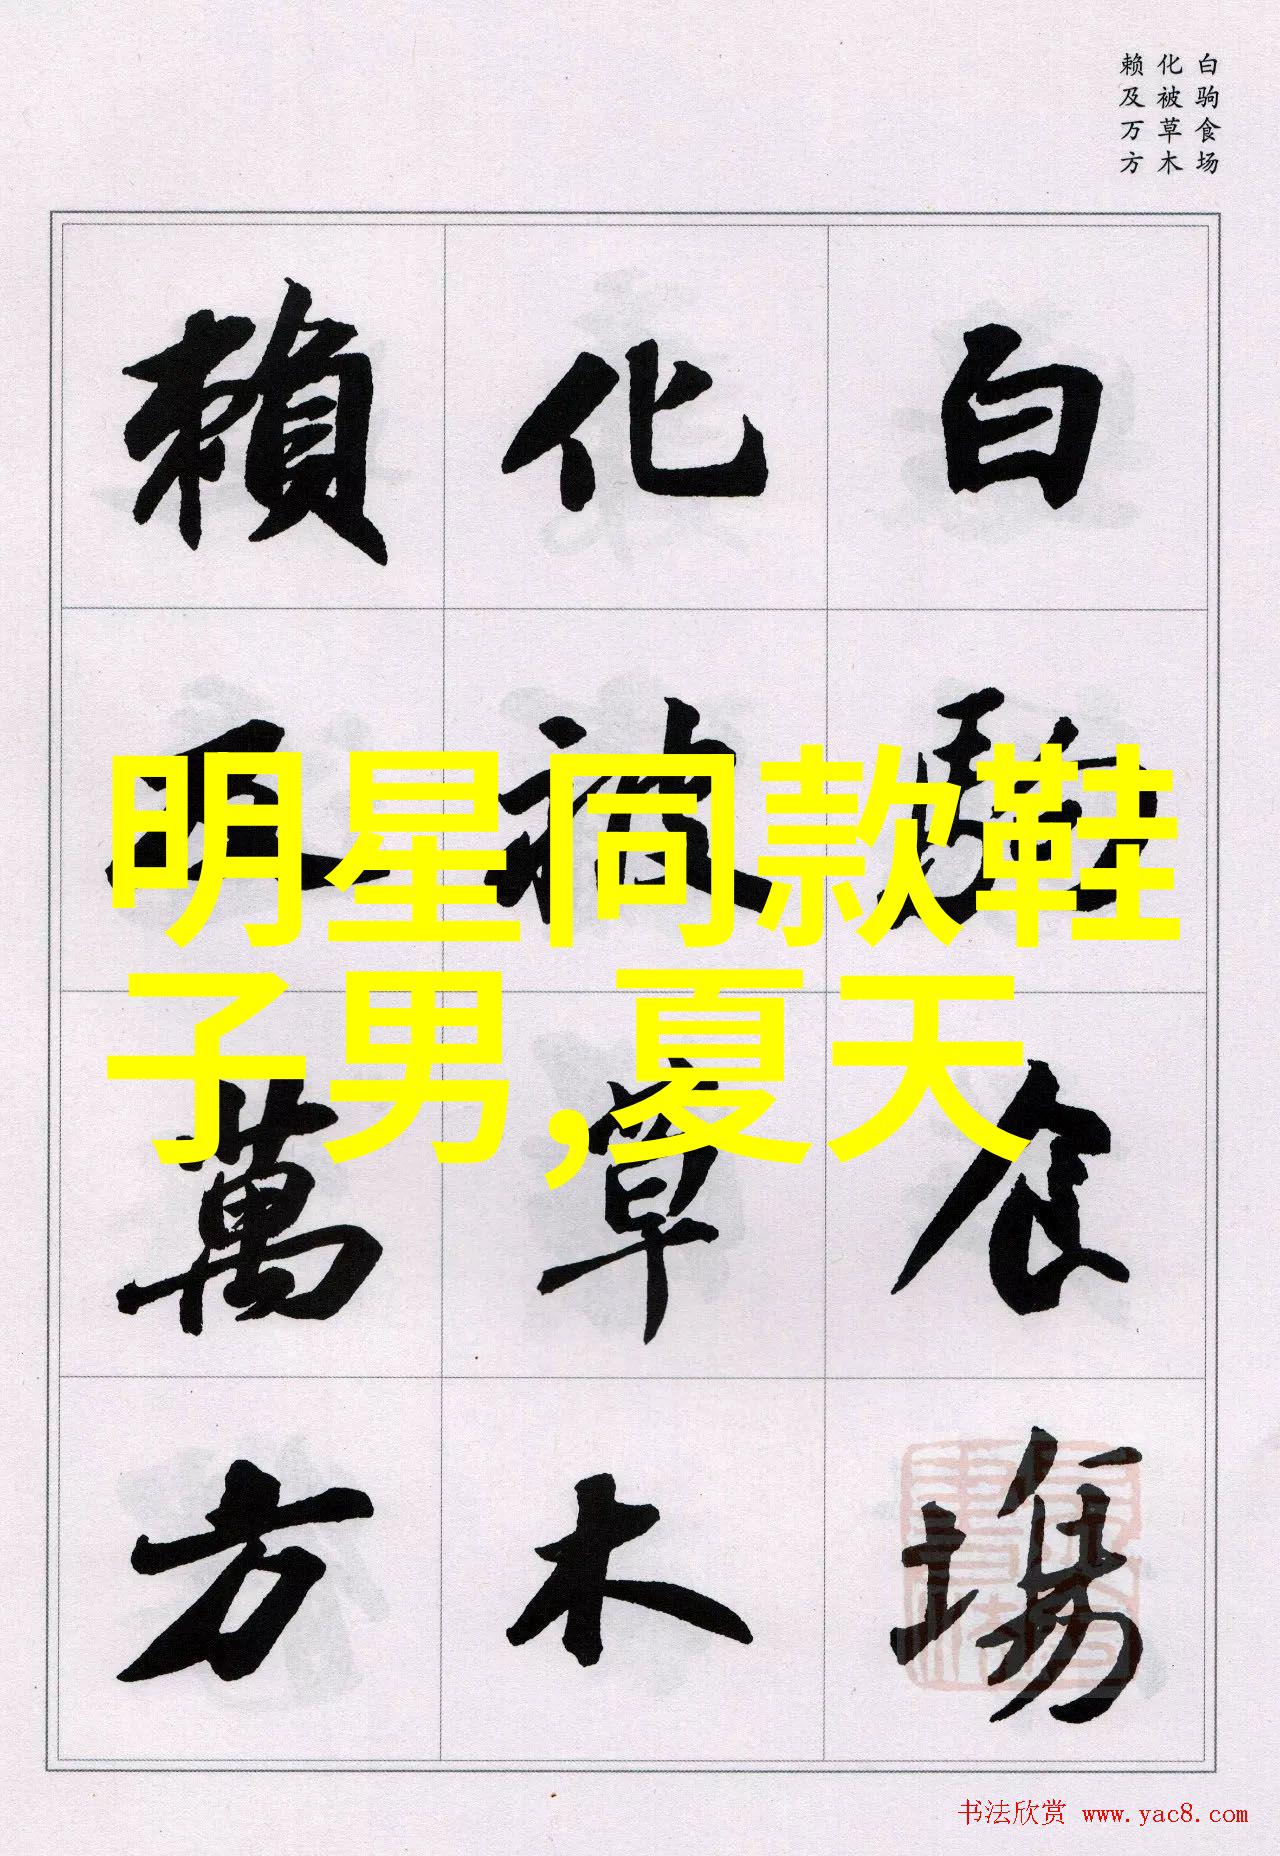 白驹食场
化被草木
赖及万方
白駒食場
化被草木
賴及萬方
明星同款鞋
子男,夏天
书法欣赏 www.yac8.com